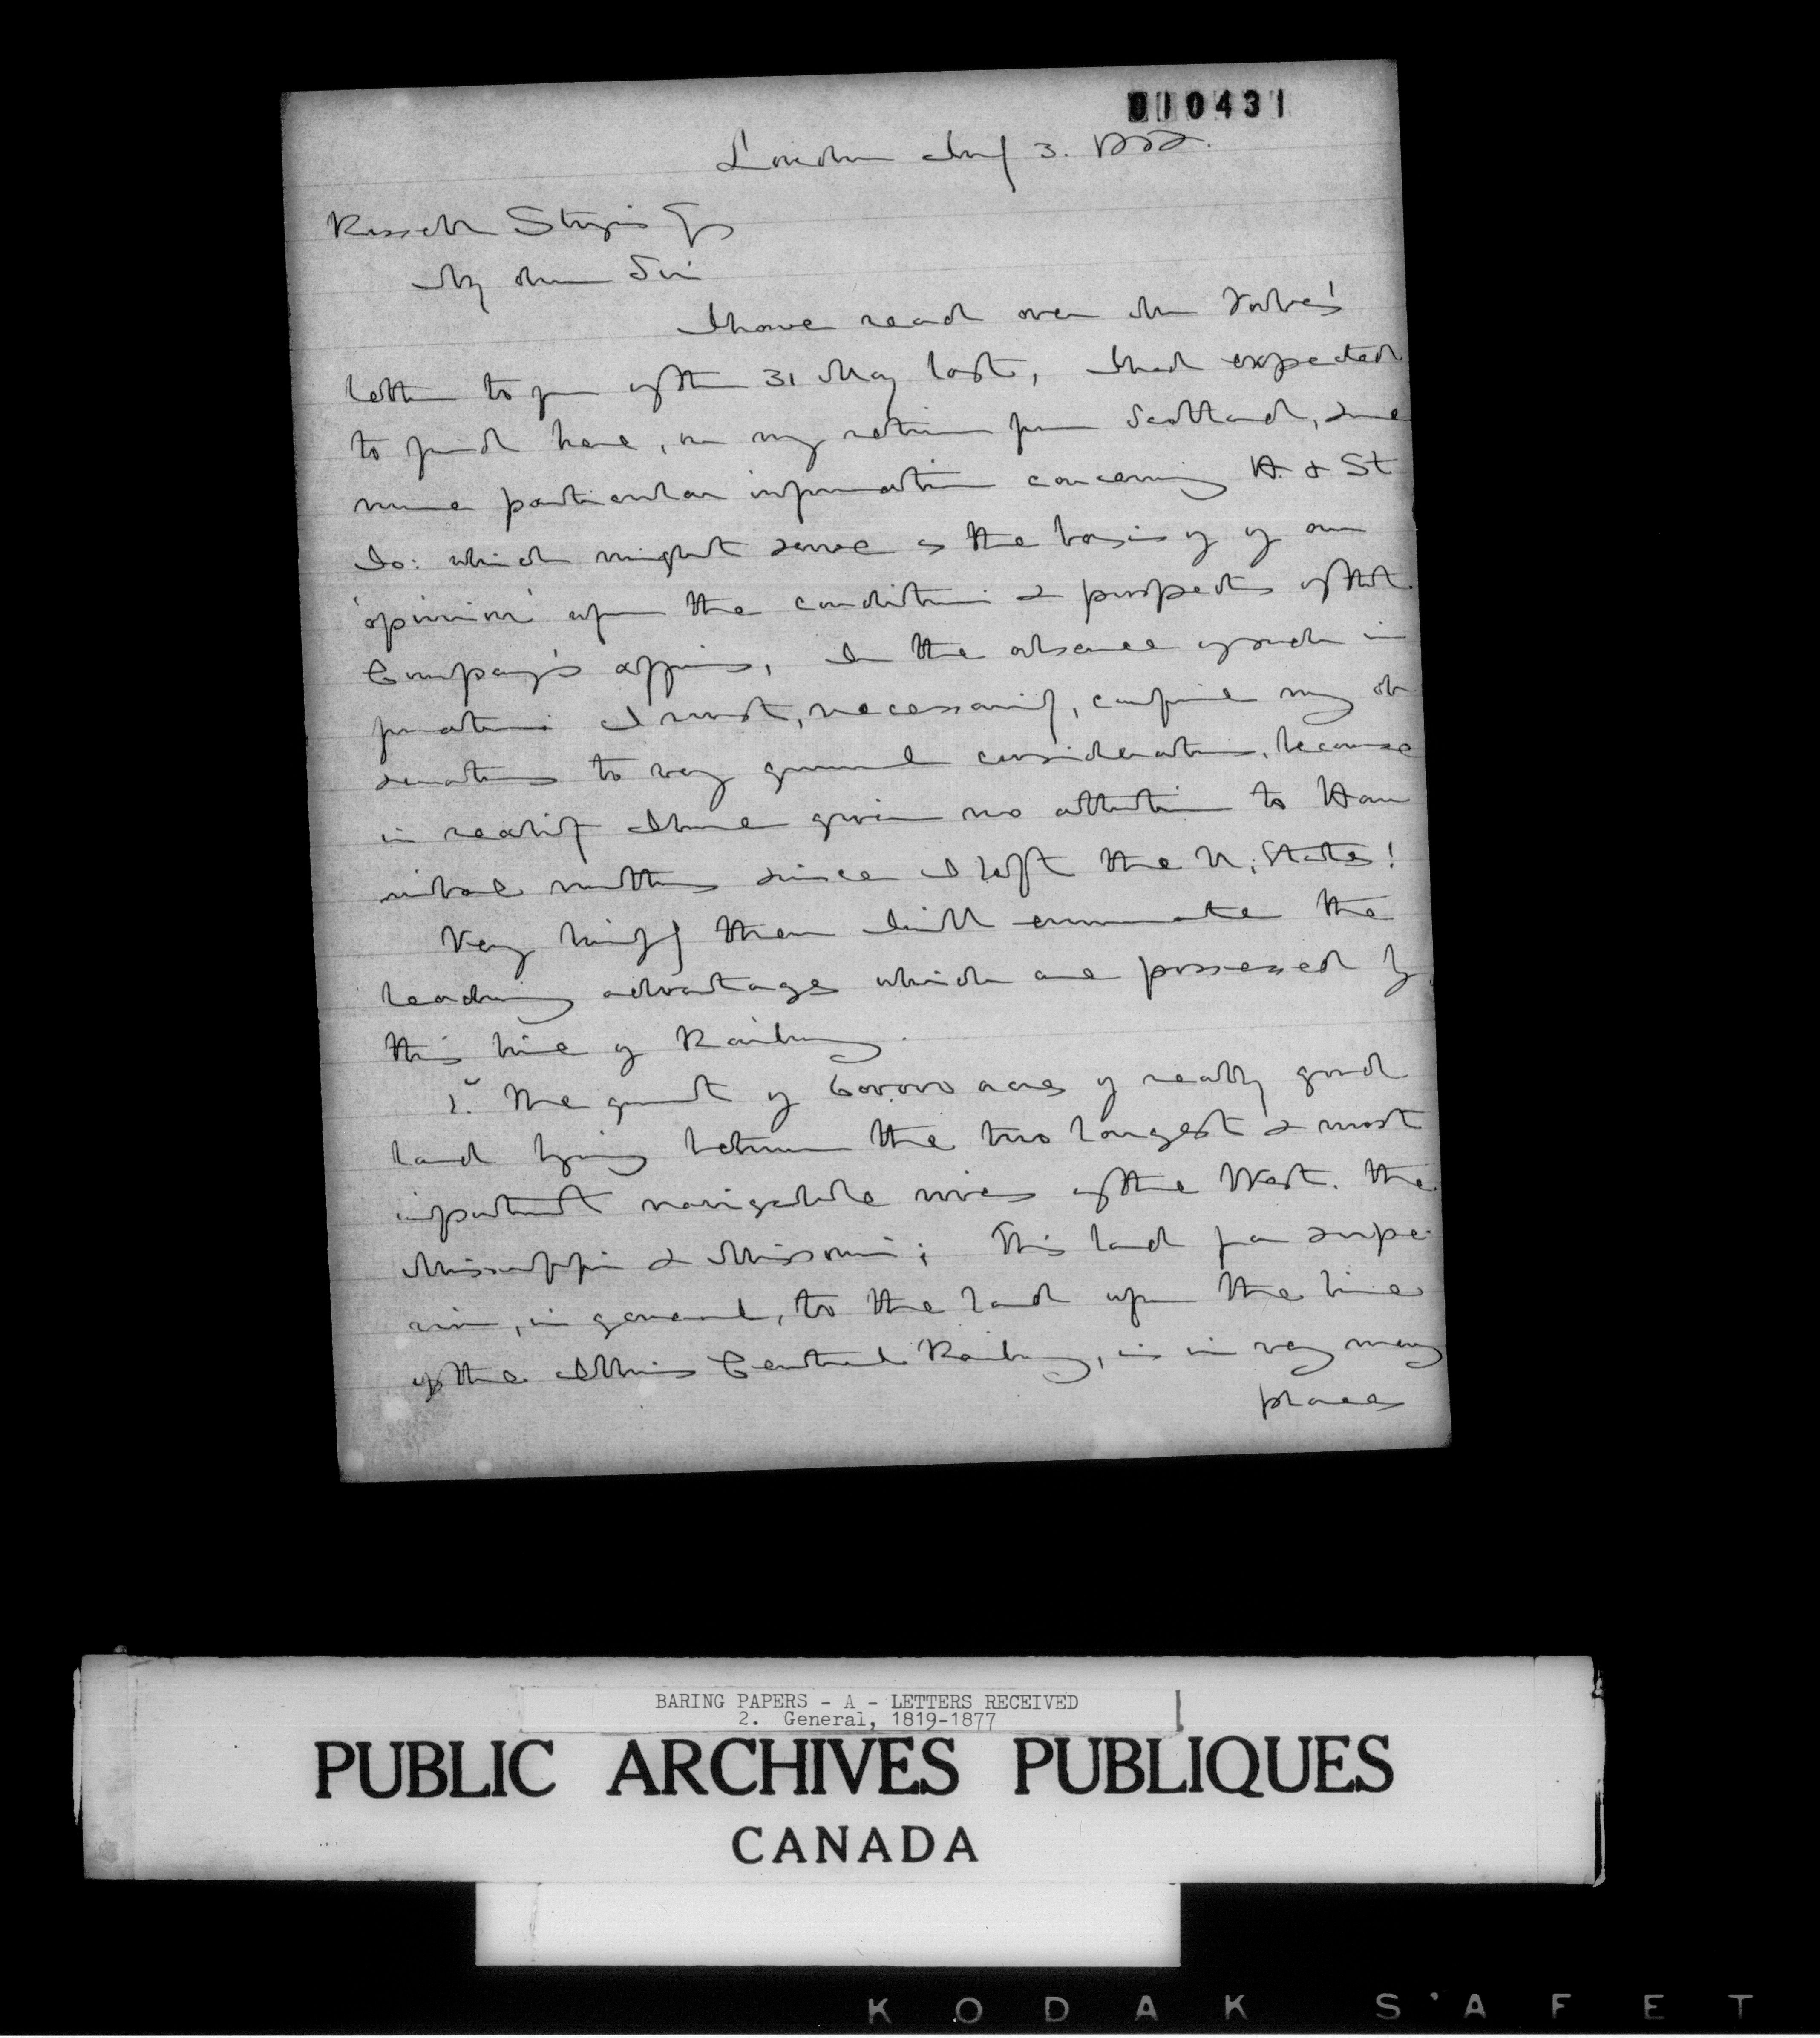 010431
London July 3. 1858.
Russell Sturgis Esq
My dear Sir
I have read over Mr Forbes'
letter to you of the 31 May last, I had expected
to find here, on my return from Scotland, some
more particular information concerning H. & St
Jo: which might serve as the basis of an
'opinion' upon the condition & prospects of that
Company's affairs, In the absence of such in
formation I must, necessarily, confine my ob
servations to very general considerations, because
in reality I have given no attention to Han
nibal matters since I left the U. States!
Very briefly then I will enumerate the
leading advantages which are possessed by
this line of Railway.
1. The grant of 600.000 acres of really good
land lying between the two longest & most
important navigable rivers of the West. the
Mississippi & Missouri; This land far supe
rior, in general, to the land upon the line
of the Illinois Central Railway, is in very many
places
BARING PAPERS - A - LETTERS RECEIVED
2. General, 1819-1877
PUBLIC ARCHIVES PUBLIQUES
CANADA
KODAK S'AFET